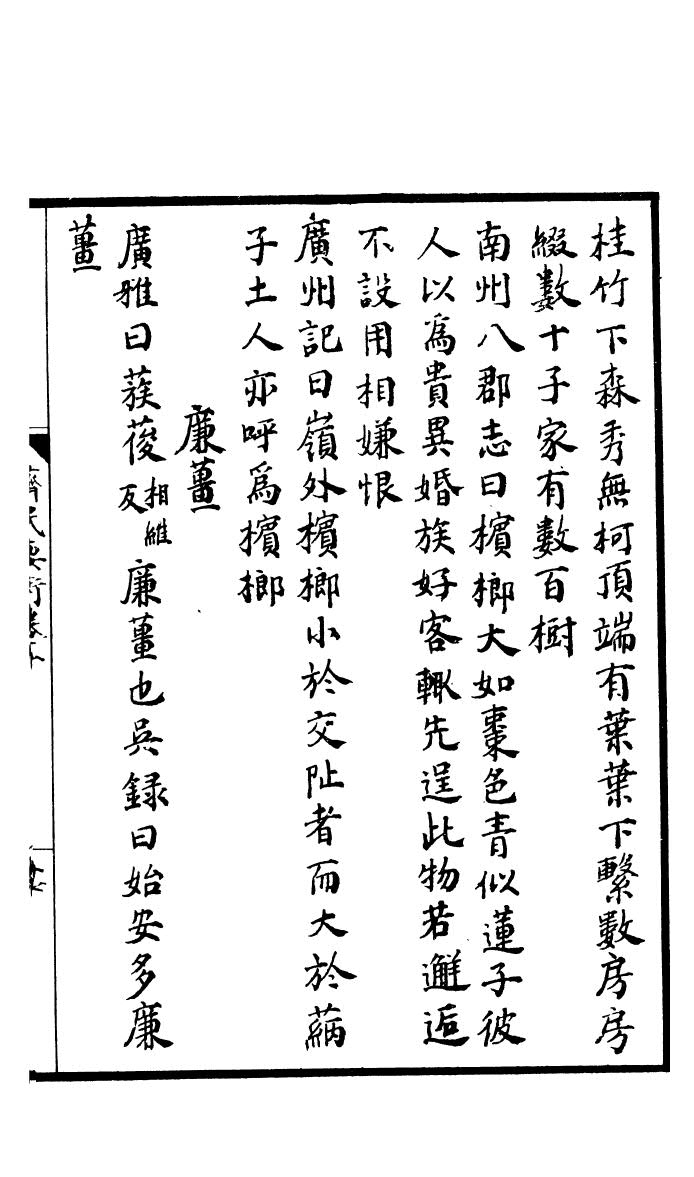 桂竹下森秀無柯頂端有葉葉下繫數房房
綴數十子家有數百樹
南州八郡志曰檳榔大如棗色青似蓮子彼
人以爲貴異婚族好客輒先逞此物若邂逅
不設用相嫌恨
廣州記曰嶺外檳榔小於交阯者而大於蒳
子土人亦呼爲檳榔
廉薑
廣雅曰蔟葰相維反廉薑也吳録曰始安多廉
薑
齊民要術卷十